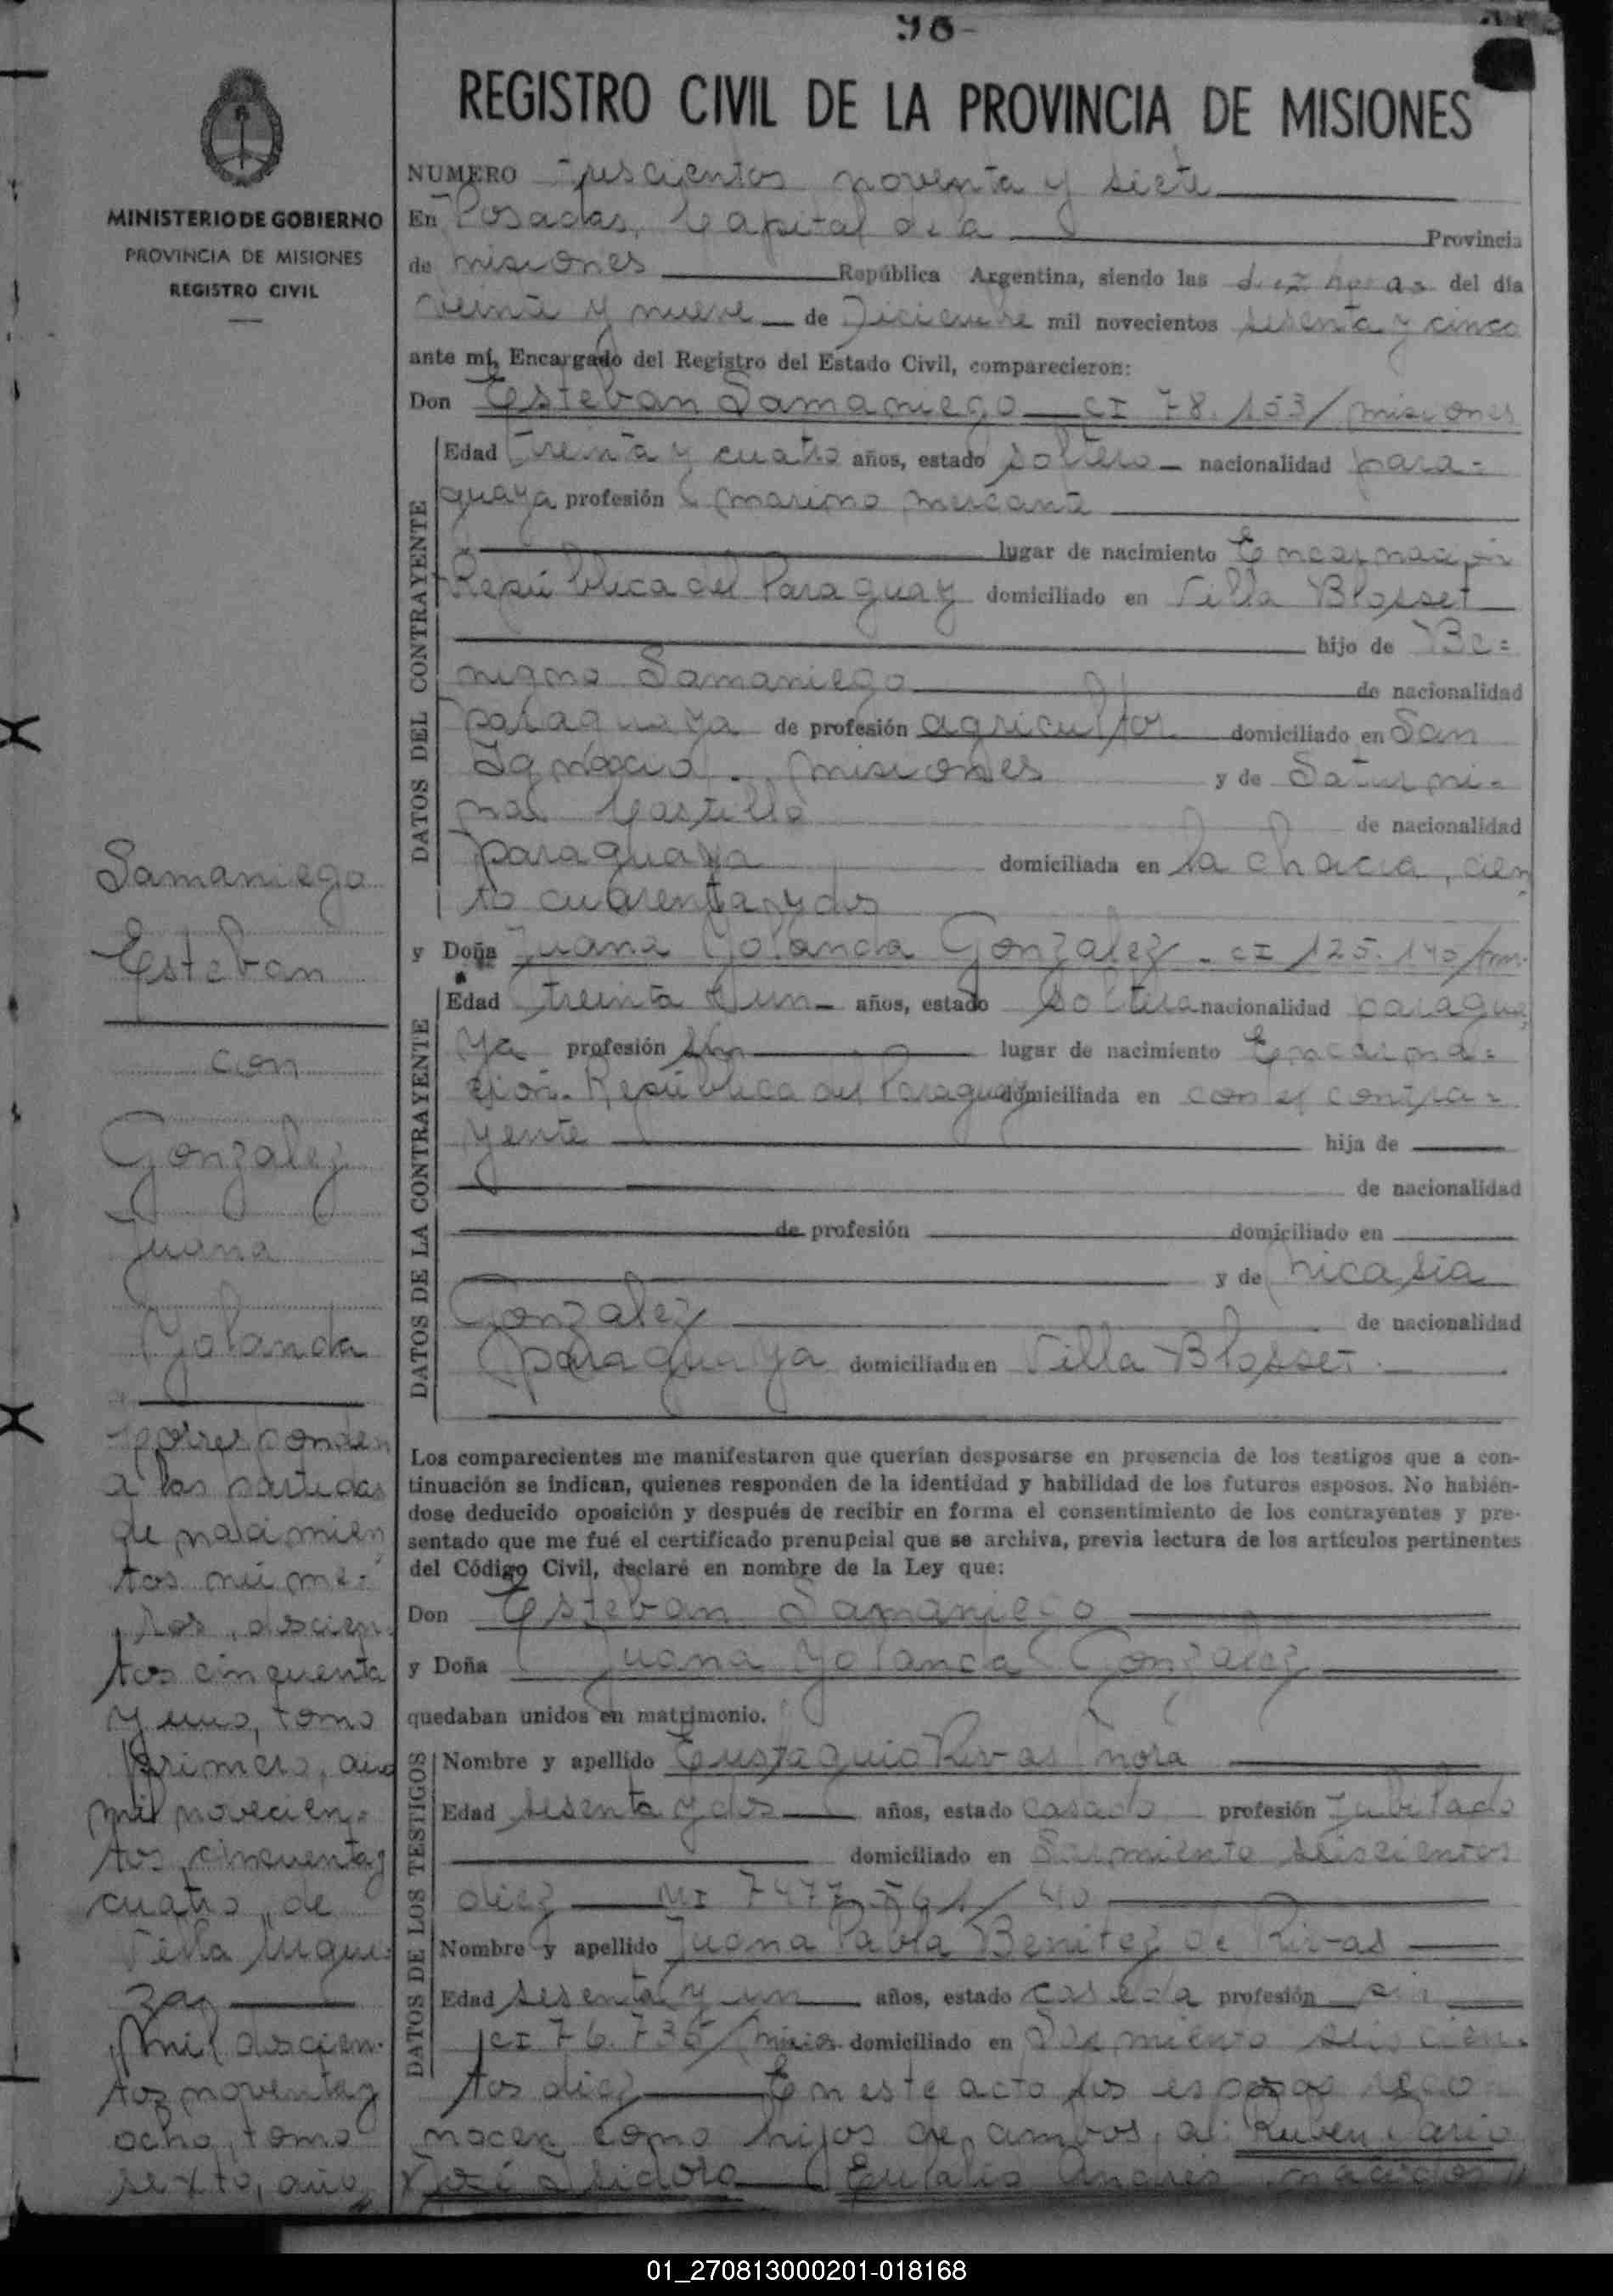 98-
REGISTRO CIVIL DE LA PROVINCIA DE MISIONES
MINISTERIO DE GOBIERNO
PROVINCIA DE MISIONES
REGISTRO CIVIL
NUMERO Trescientos noventa y siete
En Posadas, Capital de la Provincia
de misiones República Argentina, siendo las diez horas del día
veinte y nueve de Diciembre mil novecientos sesenta y cinco
ante mí, Encargado del Registro del Estado Civil, comparecieron:
Don Esteban Samaniego CI 78.153/misiones
DATOS DEL CONTRAYENTE
Edad treinta y cuatro años, estado soltero nacionalidad para=
guaya profesión marino mercante
lugar de nacimiento Encarnación
República del Paraguay domiciliado en Villa Blosset
hijo de Be=
nigno Samaniego de nacionalidad
paraguaya de profesión agricultor domiciliado en San
Ignacio. misiones y de Saturni=
na Castillo de nacionalidad
paraguaya domiciliada en la chacra, cien
to cuarenta y dos
y Doña Juana Yolanda Gonzalez - CI 125.140/mn.
DATOS DE LA CONTRAYENTE
Edad treinta y un años, estado soltera nacionalidad paragua
ya profesión sin lugar de nacimiento Encarna=
ción. República del Paraguay domiciliada en con el contra=
yente hija de
de nacionalidad
de profesión domiciliado en
y de nicasia
Gonzalez de nacionalidad
paraguaya domiciliada en Villa Blosset.
Los comparecientes me manifestaron que querían desposarse en presencia de los testigos que a con-
tinuación se indican, quienes responden de la identidad y habilidad de los futuros esposos. No habién-
dose deducido oposición y después de recibir en forma el consentimiento de los contrayentes y pre-
sentado que me fué el certificado prenupcial que se archiva, previa lectura de los artículos pertinentes
del Código Civil, declaré en nombre de la Ley que:
Don Esteban Samaniego
y Doña Juana Yolanda Gonzalez
quedaban unidos en matrimonio.
DATOS DE LOS TESTIGOS
Nombre y apellido Eustaquio Rivas Mora
Edad sesenta y dos años, estado casado profesión Jubilado
domiciliado en Sarmiento seiscientos
diez MI
Nombre y apellido Juana Pabla Benitez de Rivas
Edad sesenta y un años, estado casada profesión sin
CI 76.735/ domiciliado en Sarmiento seiscien=
tos diez En este acto los esposos reco
nocen como hijos de ambos, a: Ruben Dario
José Isidoro Eulalio Andrés nacidos
Samaniego
Esteban
con
Gonzalez
Juana
Yolanda
corresponden
a las partidas
de nacimien
tos núme=
ros, doscien
tos cinquenta
y uno, tomo
primero, año
mil novecien=
tos cincuenta y
cuatro, de
Villa Urqui=
za
mil doscien=
tos noventa y
ocho, tomo
sexto, año
01_270813000201-018168